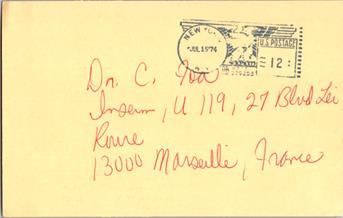 NEW YORK
JUL 15'74
U.S. POSTAGE
12
Dr. C. Foa
Inserm, U 119, 27 Blvd Lei
Roure
13000 Marseille, France